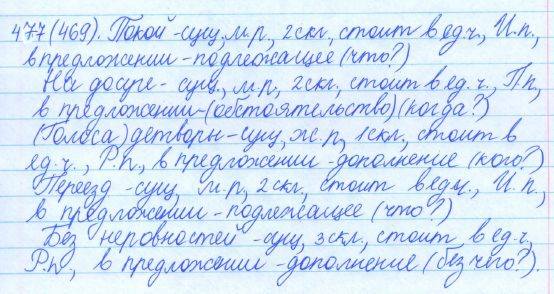 477(469). Покой - сущ., м.р., 2скл., стоит в ед.ч., И.п.,
в предложении - подлежащее (что?)
На досуге - сущ., м.р., 2скл., стоит в ед.ч., П.п.,
в предложении - (обстоятельство) (когда?)
(Голоса) детворы - сущ., ж.р., 1скл., стоит в
ед.ч., Р.п., в предложении - дополнение (кого?)
Переезд - сущ., м.р., 2скл., стоит в ед.ч., И.п.,
в предложении - подлежащее (что?)
Без неровностей - сущ., 3скл., стоит в ед.ч.,
Р.п., в предложении - дополнение (без чего?).